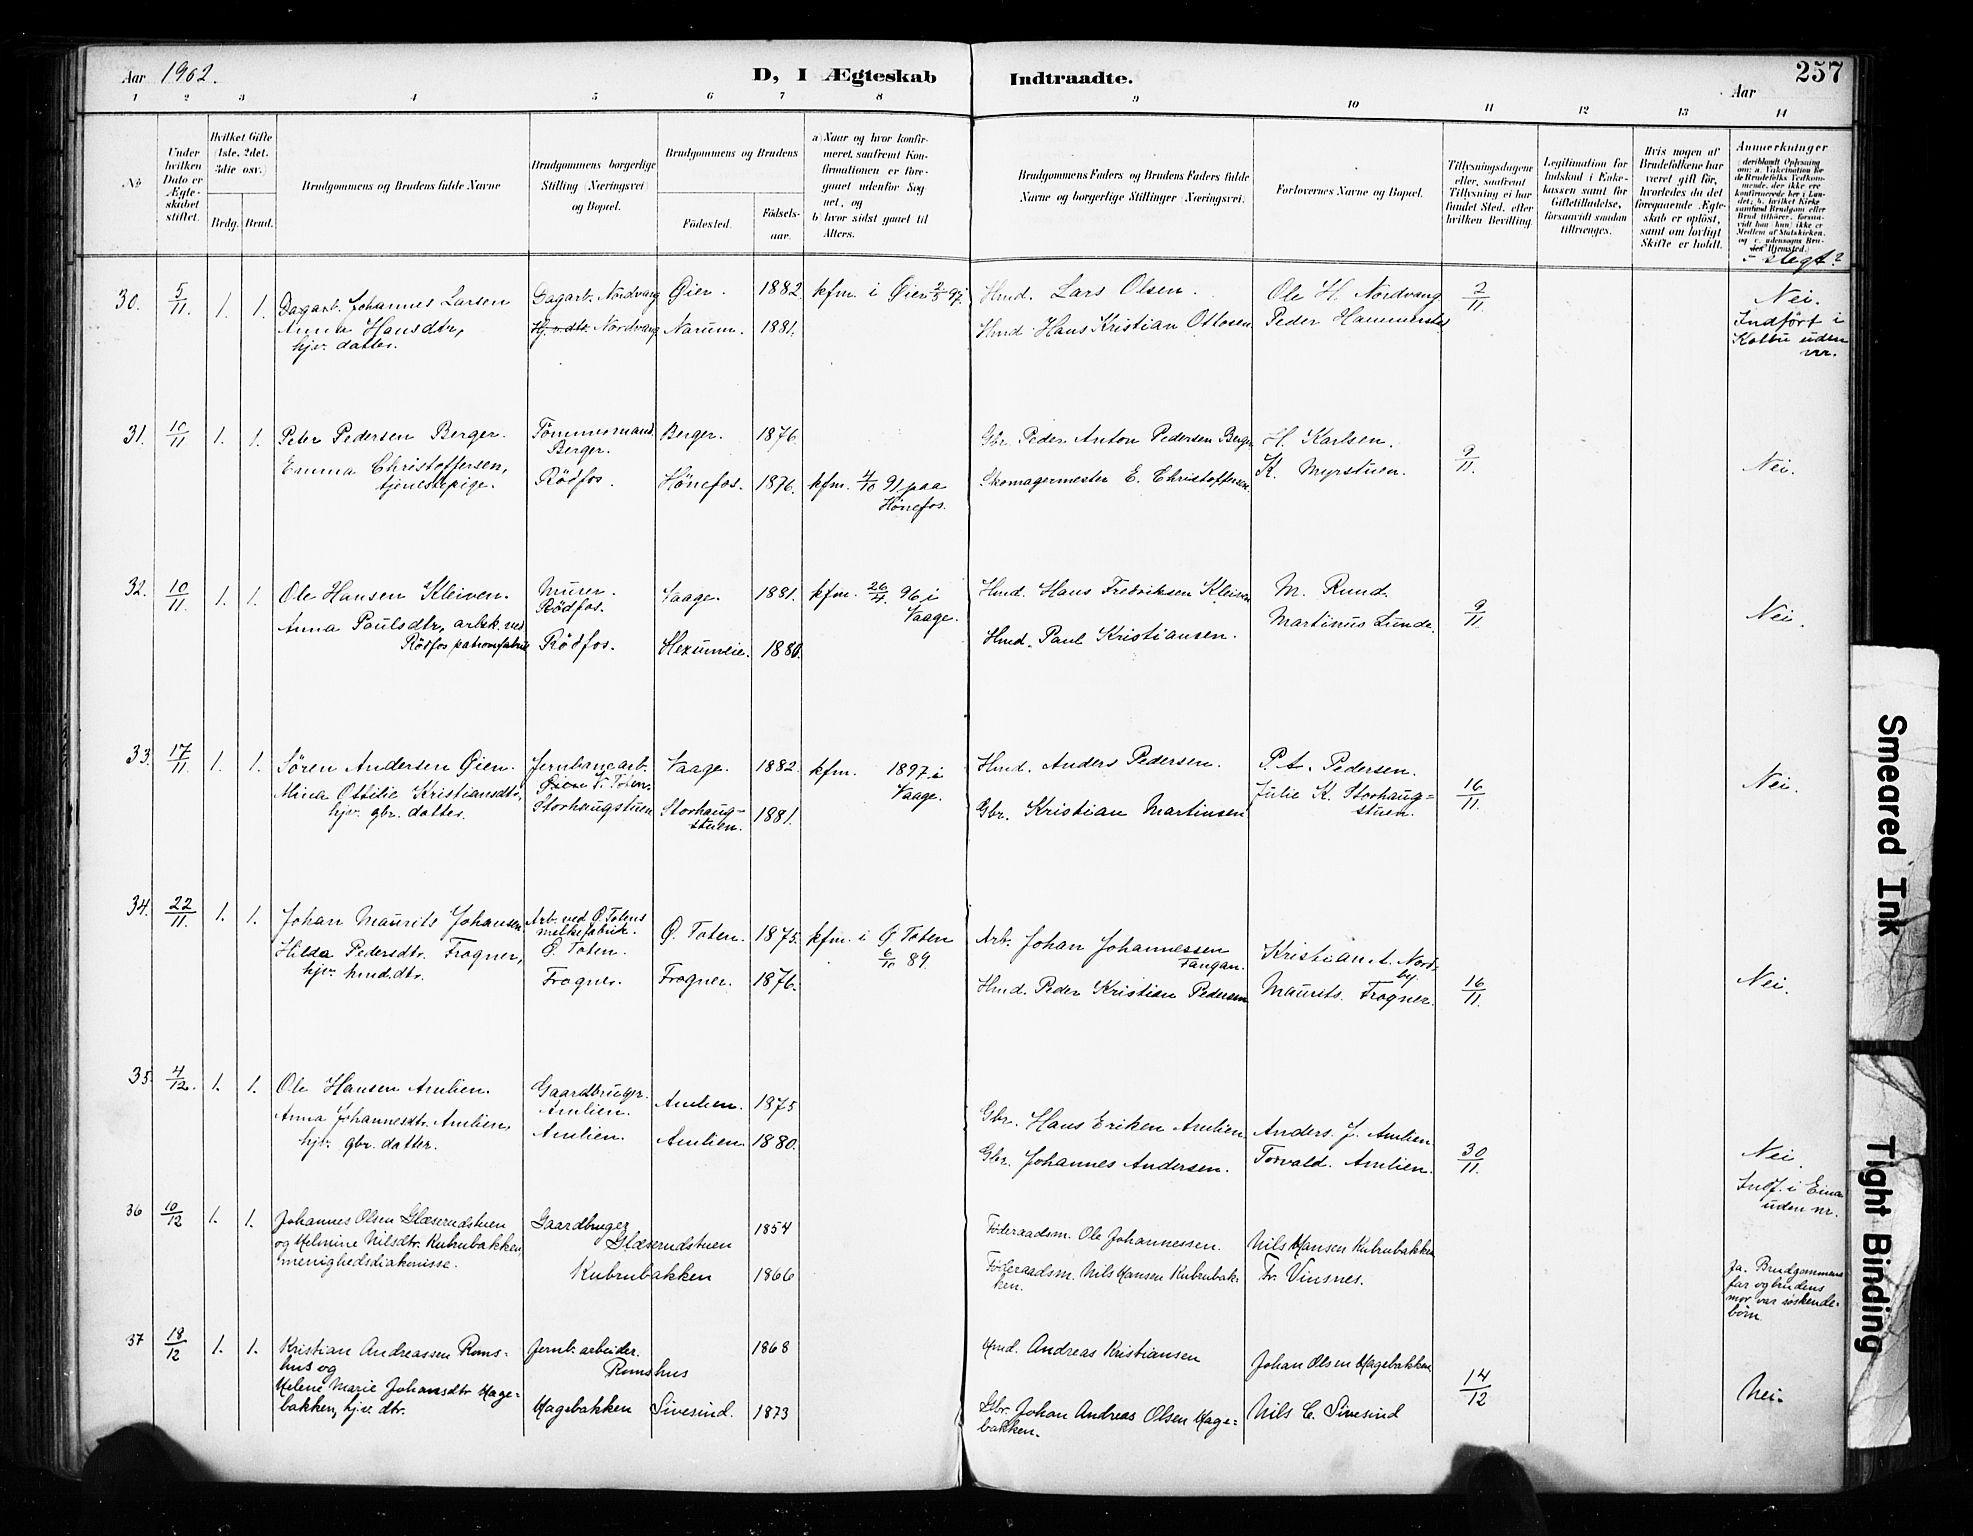 Aar 1902.
D, I Ægteskab Indtraadte.
257
Aar
1 2 3 4 5 6 7 8 9 10 11 12 13 14
No
Under hvilken Dato er Ægteskabet stiftet.
Hvilket Gifte (1ste, 2det, 3die osv.)
Brdg. Brud.
Brudgommens og Brudens fulde Navne
Brudgommens borgerlige Stilling (Næringsvei) og Bopæl.
Brudgommens og Brudens
Fødested.
Fødselsaar.
a) Naar og hvor konfirmeret, saafremt Konfirmationen er foregaaet udenfor Sognet, og
b) hvor sidst gaaet til Alters.
Brudgommens Faders og Brudens Faders fulde Navne og borgerlige Stillinger (Næringsvei).
Forlovernes Navne og Bopæl.
Tillysningsdagene eller, saafremt Tillysning ei har fundet Sted, efter hvilken Bevilling.
Legitimation for Indskud i Enkekassen samt for Giftetilladelse, forsaavidt saadan tiltrænges.
Hvis nogen af Brudefolkene har været gift før, hvorledes da det foregaaende Ægteskab er opløst, samt om lovligt Skifte er holdt.
Anmærkninger
i slegt?
30. 5/11 1. 1. Dagarb. Johannes Larsen
Anna Hansdtr,
hjv. datter.
Dagarb. Nordvang Øier. 1882. kfm. i Øier 2/5 97.
Hj.v.dtr. Nordvang Narum. 1881.
Hmd. Lars Olsen.
Hmd. Hans Kristian Ottosen.
Ole H. Nordvang
Peder Hammerstad
2/11
Nei.
Indført i
Kolbu uden
nr.
31. 10/11 1. 1. Peter Pedersen Berger.
Emma Christoffersen,
tjenestepige.
Tömmermand. Berger. 1876.
Berger.
Rödfos. Hönefos. 1876. kfm. 4/10 91 paa
Hönefos.
Gbr. Peder Anton Pedersen Berger
Skomagermester E. Christoffersen.
H. Karlsen.
K. Myrstuen.
9/11.
Nei.
32. 10/11 1. 1. Ole Hansen Kleiven.
Anna Paulsdtr, arbek. ved
Rödfos patronfabrik
Murer. Vaage. 1881. kfm. 26/4 96 i
Rödfos. Vaage.
Rödfos. Hexumeie. 1880.
Hmd. Hans Fredriksen Kleiven
Hmd. Paul Kristiansen.
M. Rund.
Martinus Lunde.
9/11
Nei.
33. 17/11. 1. 1. Sören Andersen Øien.
Mina Ottilie Kristiansdtr,
hjv. gbr. datter.
Jernbanearb. Vaage. 1882. kfm. 1897 i
Øien V. Toten. Vaage.
Storhaugstuen Storhaug-
stuen. 1881.
Hmd. Anders Pedersen.
Gbr. Kristian Martinsen
P.A. Pedersen.
Julie K. Storhaug-
stuen.
16/11.
Nei.
34. 22/11. 1. 1. Johan Maurits Johansen
Hilda Pedersdtr. Frogner,
hjv. hmd.dtr.
Arb. ved Ø. Totens
melkefabrik.
Ø. Toten. Ø. Toten. 1875. kfm. i Ø. Toten
6/10 89.
Frogner. Frogner. 1876.
Arb. Johan Johannessen
Tangan.
Hmd. Peder Kristian Pedersen
Kristian A. Nord-
by
Maurits. Frogner.
16/11.
Nei.
35. 4/12. 1. 1. Ole Hansen Amlien.
Anna Johannesdtr. Amlien,
hjv. gbr. datter.
Gaardbruger. Amlien. 1875
Amlien.
Amlien. Amlien. 1880.
Gbr. Hans Eriken Amlien
Gbr. Johannes Andersen.
Anders. J. Amlien
Torvald. Amlien.
30/11.
Nei.
Indf. i Eina
uden nr.
36 10/12 1. 1. Johannes Olsen Glæserudstuen
og Helmine Nilsdtr. Kubrubakken
menighedsdiakonisse.
Gaardbruger 1854
Glæserudstuen
Kubrubakken 1866
Föderaadsm. Ole Johannessen.
Föderaadsm. Nils Hansen Kubrubak-
ken.
Nils Hansen Kubrubakken
Fr. Vinsnes.
Ja. Brudgommens
far og brudens
mor var søskende-
børn.
37 18/12 1. 1. Kristian Andreassen Roms-
hus og
Helene Marie Johansdtr Hage-
bakken, hjv. dtr.
Jernb.arbeider. 1868
Romshus
Hagebakken Sivesind. 1873
Hmd. Andreas Kristiansen
Gbr. Johan Andreas Olsen Hage-
bakken.
Johan Olsen Hagebakken
Nils C. Sivesind
14/12
Nei.
Smeared Ink
Tight Binding